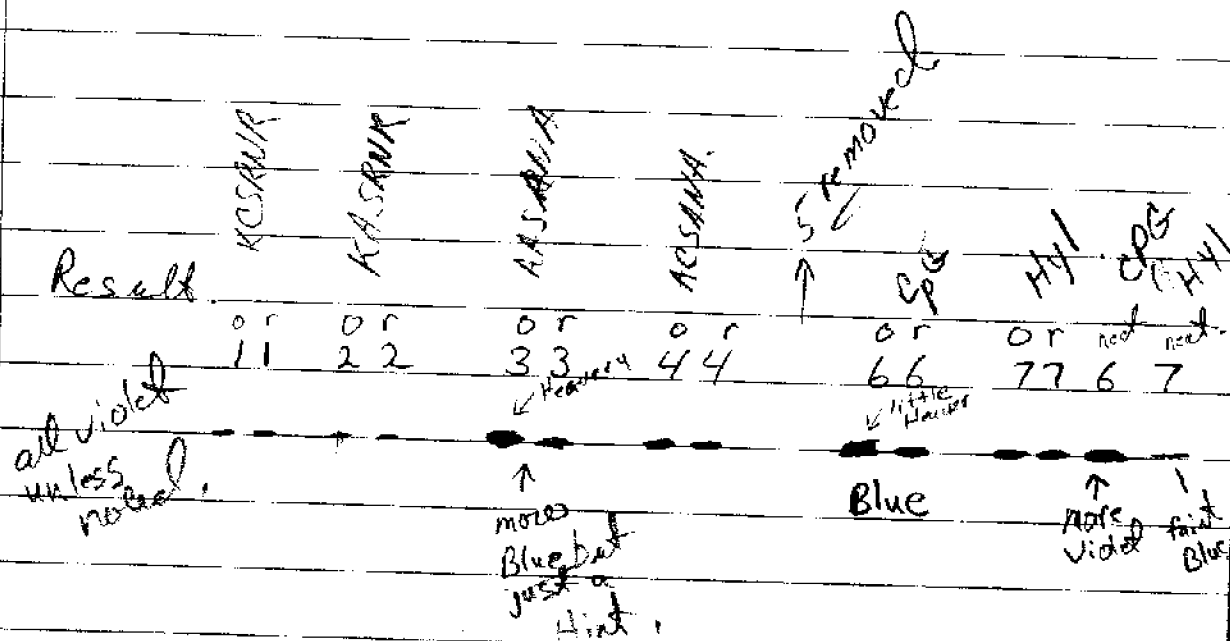 KCSRNR
KASRNR
AASARNA
ACSANA.
5 removed
CpG
Hyl
CpG
Hyl
Result.
o r o r o r o r o r o r neat neat.
1 1 2 2 3 3 4 4 6 6 7 7 6 7
Heavier
little Heavier
all violet
unless
noted.
more
Blue but
just a
Hint.
Blue
more
violet
faint
Blue